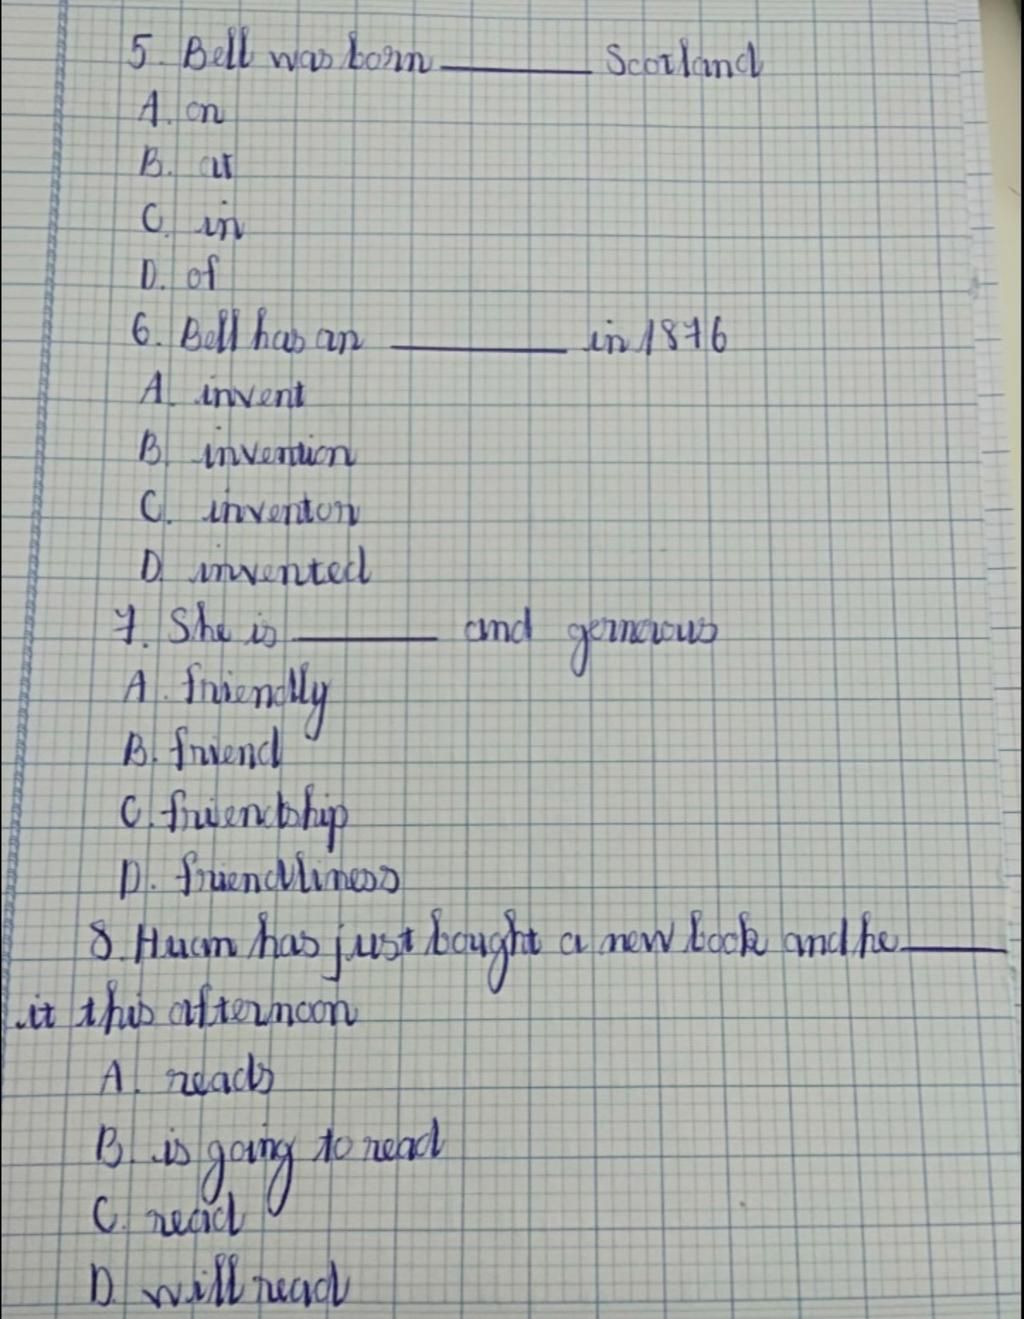 5. Bell was born ______ Scotland
A. on
B. at
C. in
D. of
6. Bell has an ______ in 1876
A. invent
B. invention
C. inventor
D. invented
7. She is ______ and gernerous
A. friendly
B. friend
C. friendship
D. friendliness
8. Huan has just bought a new book and he ______
it this afternoon
A. reads
B. is going to read
C. read
D. will read